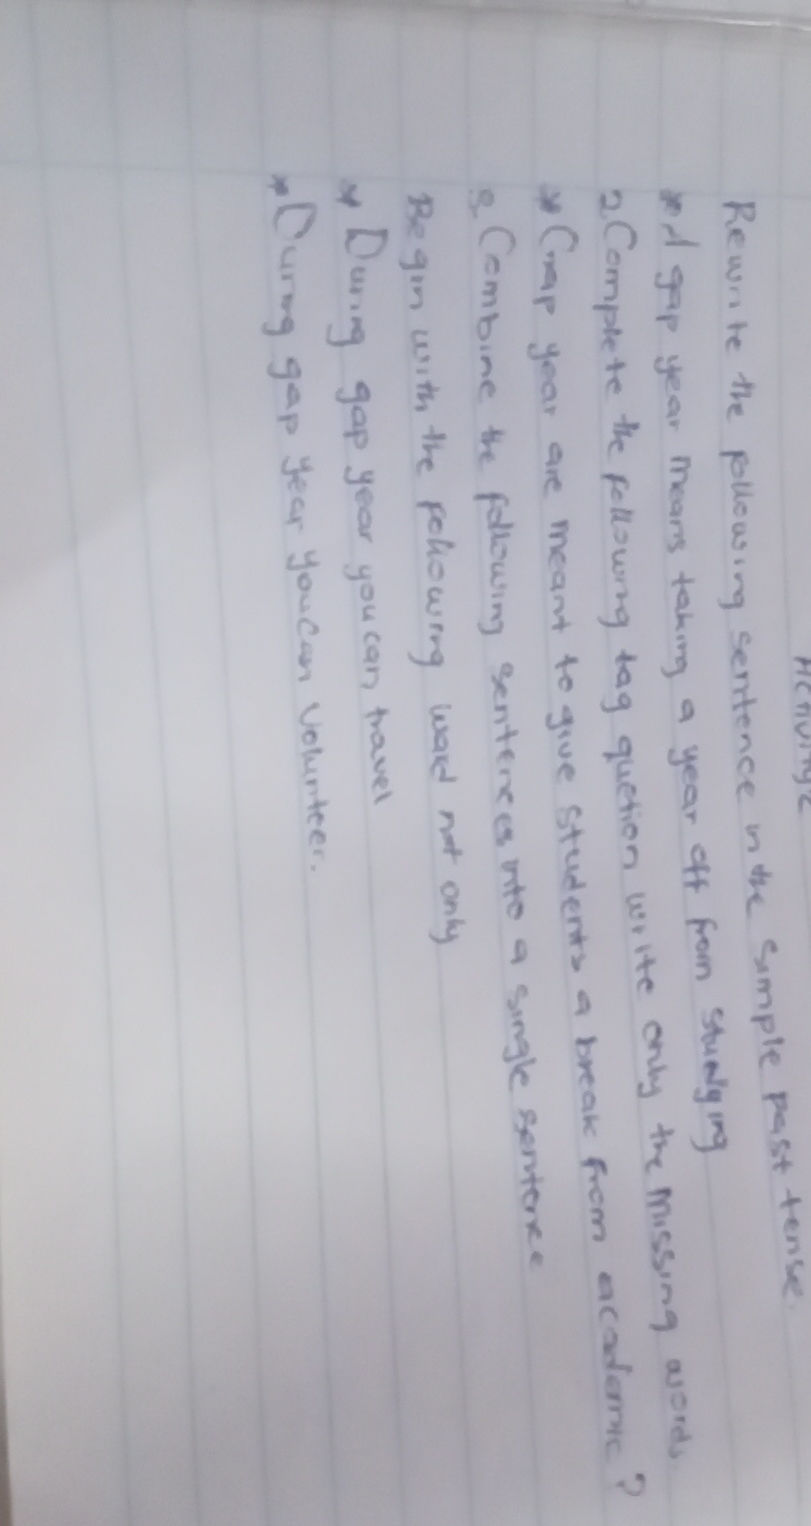 Activity 2
Rewrite the following sentence in the simple past tense.
* A gap year means taking a year off from studying
2 Complete the following tag quetion write only the missing words.
* Gap year are meant to give students a break from academic ?
3. Combine the following sentences into a single sentence
Begin with the following word not only
* During gap year you can travel
* During gap year you can volunteer.